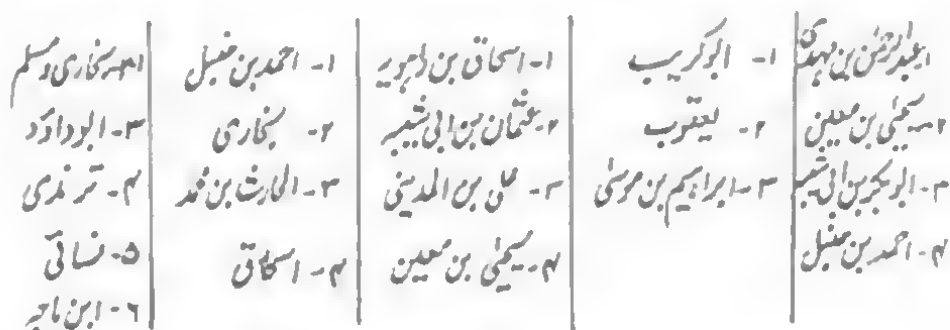 ۱۔عبدالرحمٰن بن مہدی
۲۔یحیٰی بن معین
۳۔ابوبکر بن ابی شیبہ
۴۔احمد بن حنبل
۱۔ ابوکریب
۲۔ یعقوب
۳۔ابراہیم بن موسٰی
۱۔اسحاق بن راہویہ
۲۔عثمان بن ابی شیبہ
۳۔ علی بن المدینی
۴۔یحیٰی بن معین
۱۔ احمد بن حنبل
۲۔ بخاری
۳۔ الحارث بن محمد
۴۔ اسحاق
۱۔۲۔بخاری ومسلم
۳۔ابوداؤد
۴۔ ترمذی
۵۔نسائی
۶۔ابن ماجہ